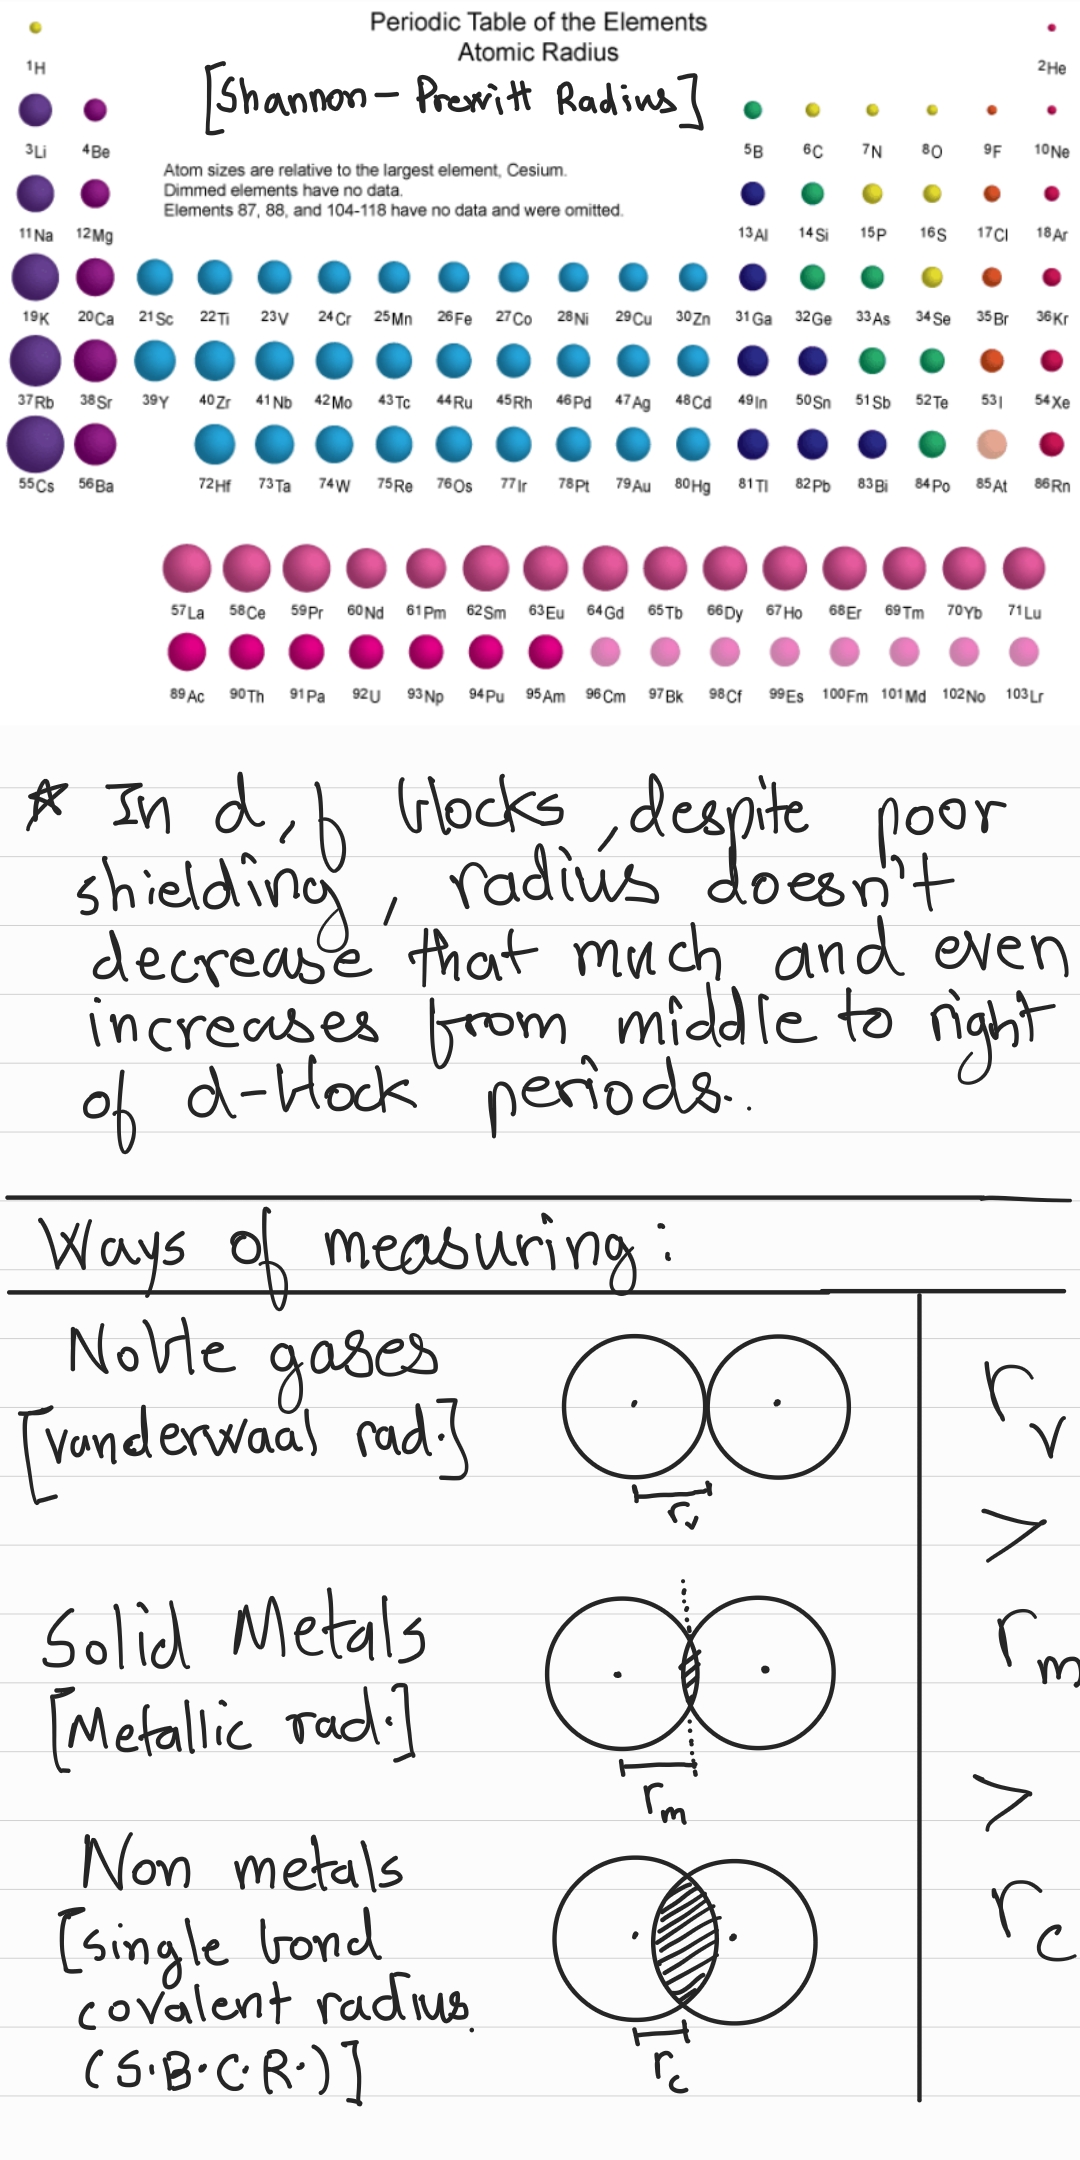 Periodic Table of the Elements
Atomic Radius
[Shannon - Prewitt Radius]
1H 2He
3Li 4Be 5B 6C 7N 8O 9F 10Ne
Atom sizes are relative to the largest element, Cesium.
Dimmed elements have no data.
Elements 87, 88, and 104-118 have no data and were omitted.
11Na 12Mg 13Al 14Si 15P 16S 17Cl 18Ar
19K 20Ca 21Sc 22Ti 23V 24Cr 25Mn 26Fe 27Co 28Ni 29Cu 30Zn 31Ga 32Ge 33As 34Se 35Br 36Kr
37Rb 38Sr 39Y 40Zr 41Nb 42Mo 43Tc 44Ru 45Rh 46Pd 47Ag 48Cd 49In 50Sn 51Sb 52Te 53I 54Xe
55Cs 56Ba 72Hf 73Ta 74W 75Re 76Os 77Ir 78Pt 79Au 80Hg 81Tl 82Pb 83Bi 84Po 85At 86Rn
57La 58Ce 59Pr 60Nd 61Pm 62Sm 63Eu 64Gd 65Tb 66Dy 67Ho 68Er 69Tm 70Yb 71Lu
89Ac 90Th 91Pa 92U 93Np 94Pu 95Am 96Cm 97Bk 98Cf 99Es 100Fm 101Md 102No 103Lr
☆ In d, f blocks, despite poor
shielding, radius doesn't
decrease that much and even
increases from middle to right
of d-block periods.
Ways of measuring:
Noble gases
[vanderwaal rad.]
rv
Solid Metals
[Metallic rad.]
rm
Non metals
[single bond
covalent radius.
(S.B.C.R.)]
rc
rv
>
rm
>
rc